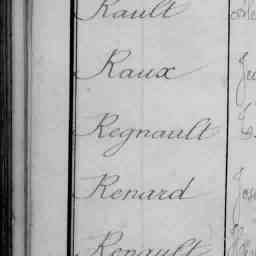 Rault
Raux
Regnault
Renard
Renault